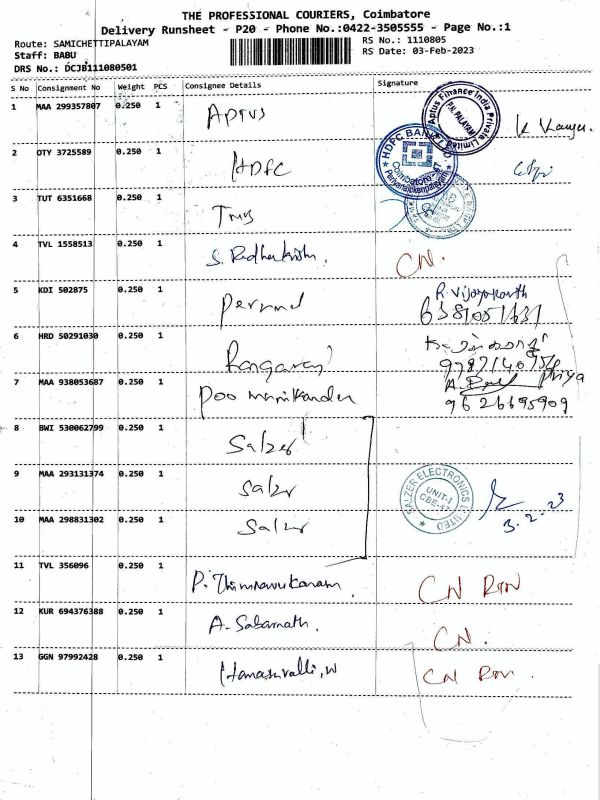 THE PROFESSIONAL COURIERS, Coimbatore
Delivery Runsheet - P20 - Phone No.:0422-3505555 - Page No.:1
Route: SAMICHETTIPALAYAM
RS No.: 1110805
Staff: BABU
RS Date: 03-Feb-2023
DRS No.: DCJB111080501
S No Consignment No Weight PCS Consignee Details Signature
1 MAA 299357807 0.250 1 Aptus
Aptus Finance India Private Limited
P.N. PALAYAM
2 OTY 3725589 0.250 1 HDFC
HDFC BANK LTD
Coimbatore-47
3 TUT 6351668 0.250 1
4 TVL 1558513 0.250 1 S. Radhakrishn. CN.
5 KDI 502875 0.250 1 personal R. Vijayakanth
6381051631
6 HRD 50291030 0.250 1 Rangaraj
7 MAA 938053687 0.250 1 Poo manikandan
9626695909
8 BWI 530062799 0.250 1 Salzer
9 MAA 293131374 0.250 1 Salzer
SALZER ELECTRONICS LIMITED
UNIT-I
CBE-47
3-2-23
10 MAA 298831302 0.250 1 Salzer
11 TVL 356096 0.250 1 CN RTN
12 KUR 694376388 0.250 1 A. Sabarnath. CN.
13 GGN 97992428 0.250 1 CN RTN.